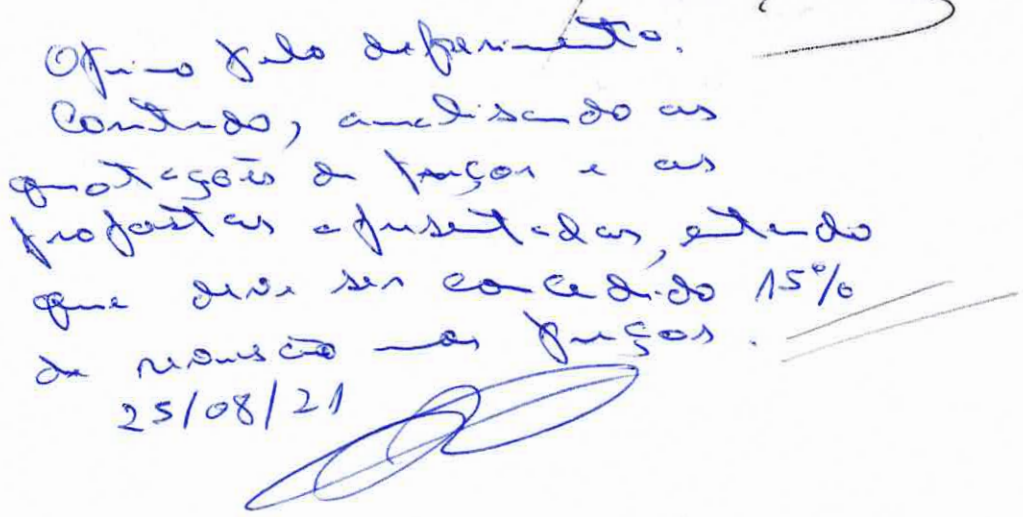 Opino pelo deferimento.
Contudo, analisando as
quotações de preços e as
propostas apresentadas, entendo
que deve ser concedido 15%
de revisão nos preços.
25/08/21